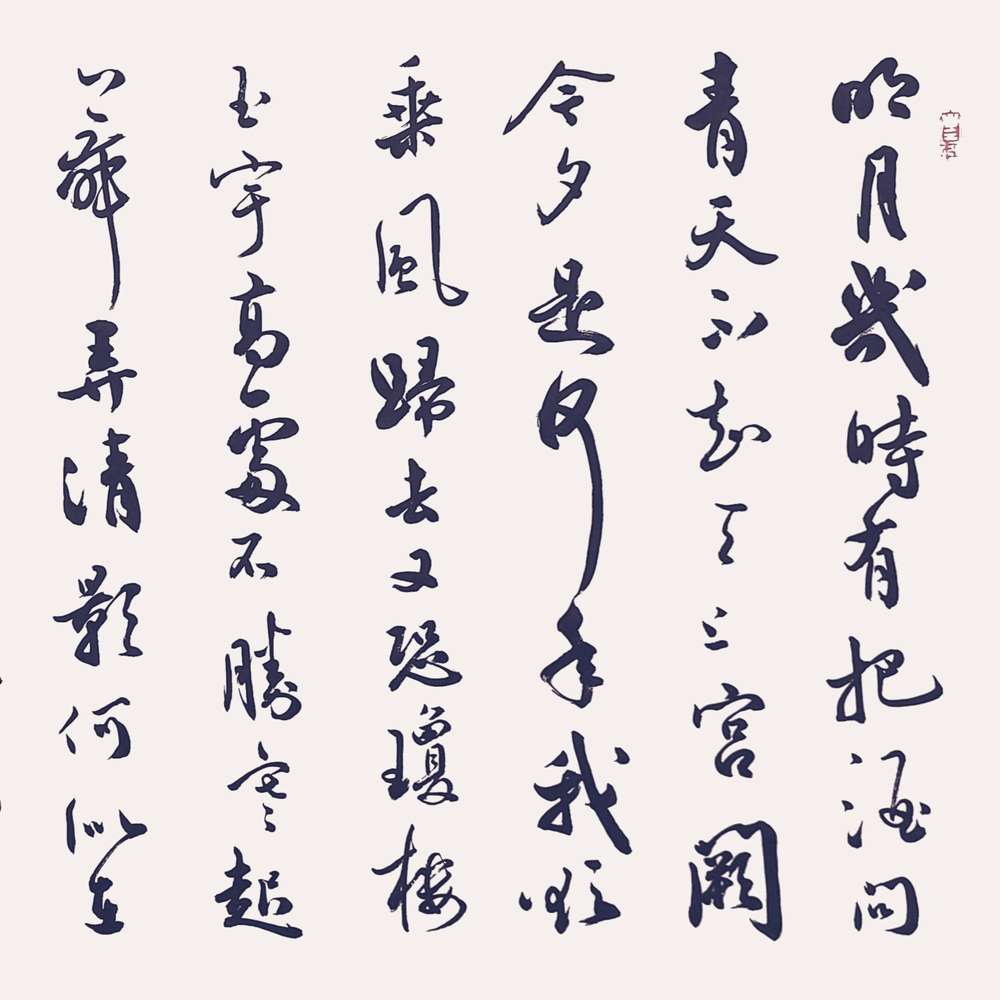 明月幾時有把酒問
青天不知天上宮闕
今夕是何年我欲
乘風歸去又恐瓊樓
玉宇高處不勝寒起
舞弄清影何似在